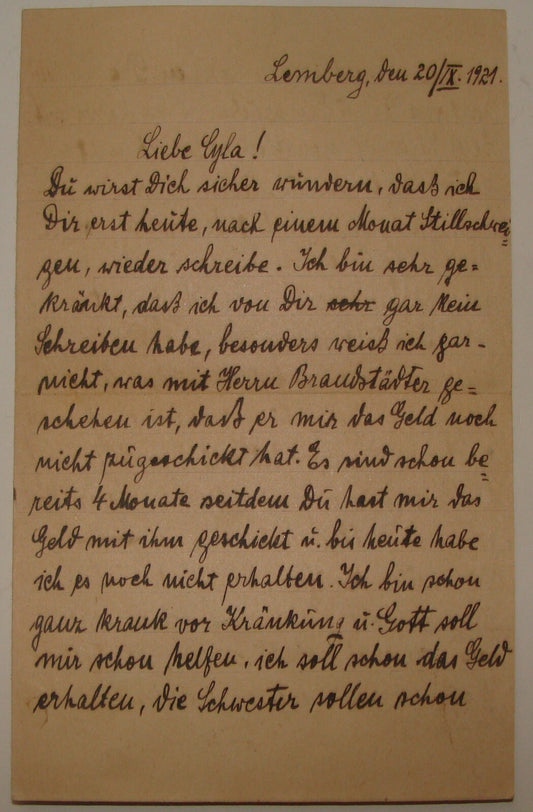 Lemberg, den 20/IX. 1921.
Liebe Cyla!
Du wirst Dich sicher wundern, dass ich
Dir erst heute, nach einem Monat Stillschwei=
gen, wieder schreibe. Ich bin sehr ge=
kränkt, dass ich von Dir sehr gar kein
Schreiben habe, besonders weiss ich gar-
nicht, was mit Herrn Brandstädter ge=
schehen ist, dass er mir das Geld noch
nicht zugeschickt hat. Es sind schon be=
reits 4 Monate seitdem Du hast mir das
Geld mit ihm geschickt u. bis heute habe
ich es noch nicht erhalten. Ich bin schon
ganz krank vor Kränkung u. Gott soll
mir schon helfen, ich soll schon das Geld
erhalten, die Schwester sollen schon